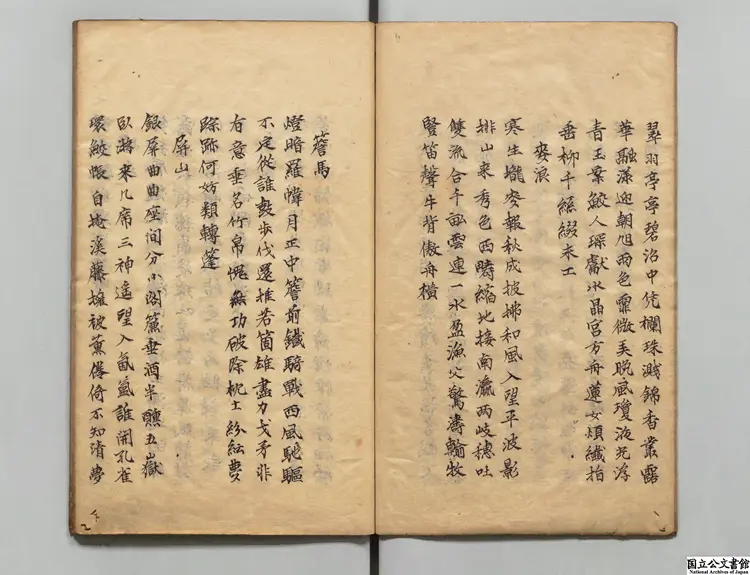 翠羽亭亭碧沼中凭欄珠濺錦香叢露
華融漾迎朝旭雨色霏微美晚風瓊液光浮
青玉案鮫人琛獻水晶宮方舟蓮女煩纖拍
垂柳千絲綴未工
麥浪
寒生壠麥報秋成披拂和風入望平波影
排山來秀色西疇縮地接南瀛兩岐穗吐
雙流合千畝雲連一水盈漁父驚濤輸牧
豎笛聲牛背傲舟橫
簷馬
燈暗羅幃月正中簷前鐵騎戰西風馳驅
不定從誰鼓步伐還推若箇雄盡力戈矛非
有意垂名竹帛愧無功破除枕上紛紜費
蹤跡何妨類轉蓬
屏山
銀屏曲曲座間分小閣簾垂酒半醺五嶽
臥游來几席三神遙望入氤氳誰開孔雀
環鮫帳自掩溪藤擁被薰倦倚不知清夢
国立公文書館
National Archives of Japan